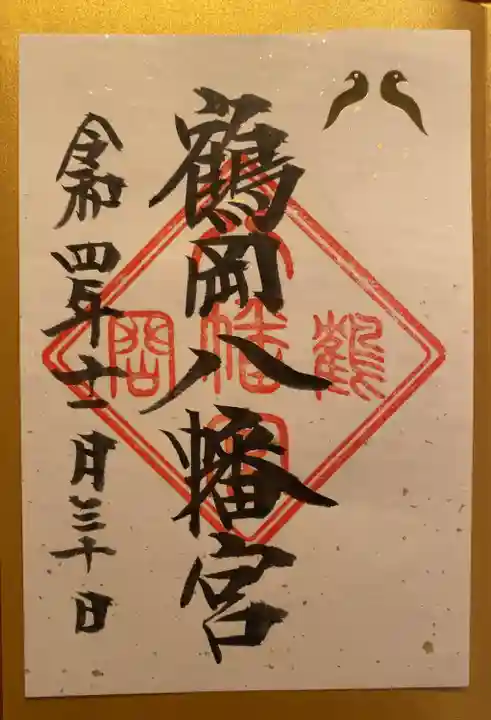 鶴岡八幡宮
令和四年十一月三十日
鶴
八幡宮
岡